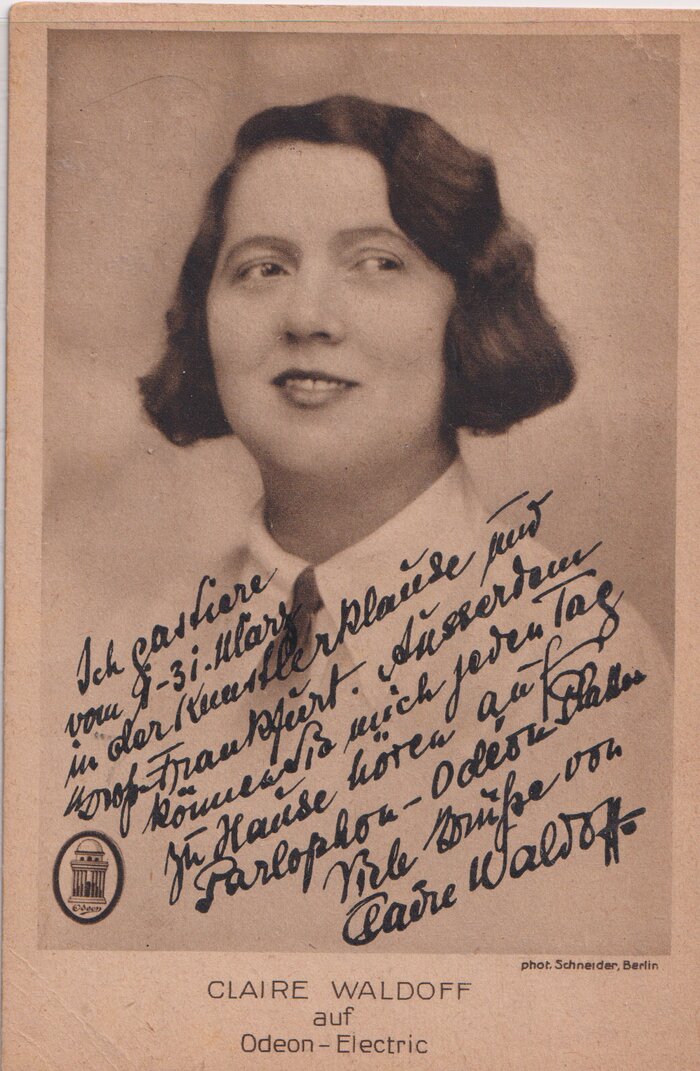 Ich gastiere
vom 1-31. März
in der Künstlerklause und
Groß-Frankfurt. Ausserdem
können Sie mich jeden Tag
zu Hause hören auf
Parlophon-Odeon Platten
Viele Grüße von
Claire Waldoff
Odeon
phot. Schneider, Berlin
CLAIRE WALDOFF
auf
Odeon-Electric